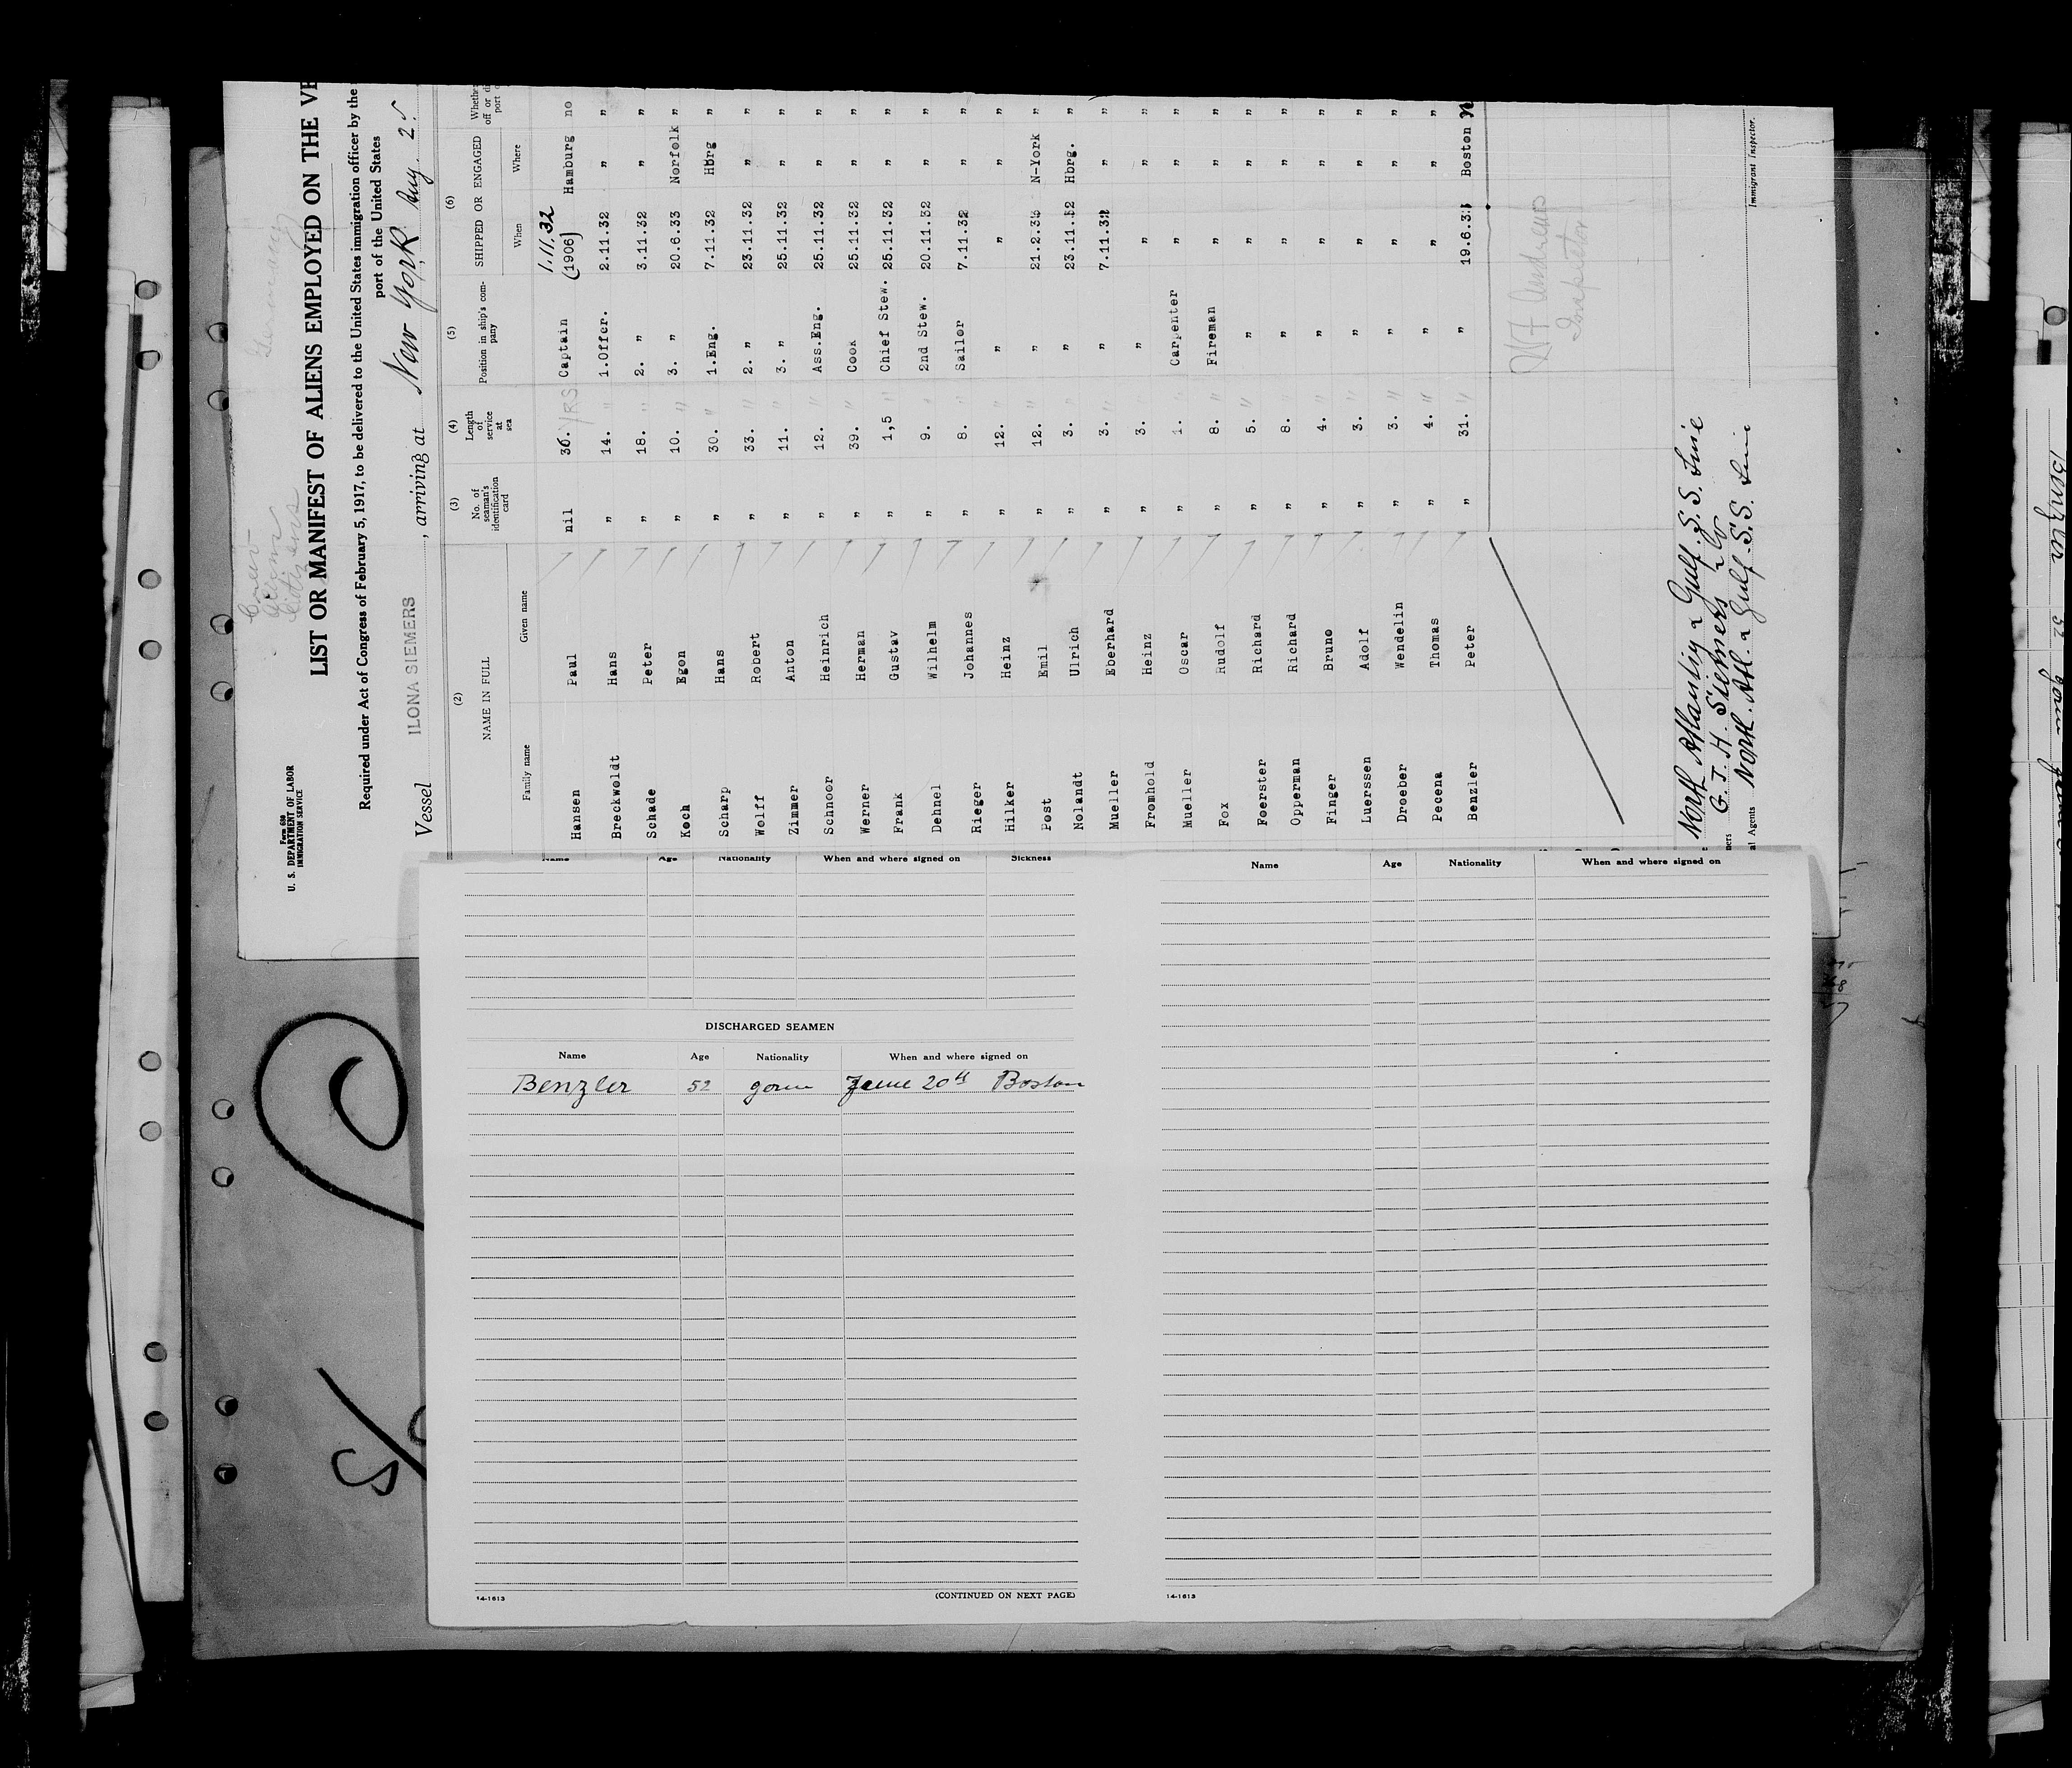 Form 680
U. S. DEPARTMENT OF LABOR
IMMIGRATION SERVICE
Crew
Aliens
Citizens
Germany
LIST OR MANIFEST OF ALIENS EMPLOYED ON THE VE
Required under Act of Congress of February 5, 1917, to be delivered to the United States immigration officer by the
port of the United States
Vessel ILONA SIEMERS, arriving at New York Aug. 2
(2) (3) (4) (5) (6)
NAME IN FULL No. of seaman's identification card Length of service at sea Position in ship's company SHIPPED OR ENGAGED
Family name Given name When Where
1.11.32
Hansen Paul nil 36. YRS Captain (1906) Hamburg no
Breckwoldt Hans " 14. " 1.Offcr. 2.11.32 " "
Schade Peter " 18. " 2. " 3.11.32 " "
Koch Egon " 10. " 3. " 20.6.33 Norfolk "
Scharp Hans " 30. " 1.Eng. 7.11.32 Hbrg "
Wolff Robert " 33. " 2. " 23.11.32 " "
Zimmer Anton " 11. " 3. " 25.11.32 " "
Schnoor Heinrich " 12. " Ass.Eng. 25.11.32 " "
Werner Herman " 39. " Cook 25.11.32 " "
Frank Gustav " 1,5 " Chief Stew. 25.11.32 " "
Dehnel Wilhelm " 9. " 2nd Stew. 20.11.32 " "
Rieger Johannes " 8. " Sailor 7.11.32 " "
Hilker Heinz " 12. " " " " "
Post Emil " 12. " " 21.2.33 N-York "
Nolandt Ulrich " 3. " " 23.11.32 Hbrg. "
Mueller Eberhard " 3. " " 7.11.32 " "
Fromhold Heinz " 3. " " " " "
Mueller Oscar " 1. " Carpenter " " "
Fox Rudolf " 8. " Fireman " " "
Foerster Richard " 5. " " " " "
Opperman Richard " 8. " " " " "
Finger Bruno " 4. " " " " "
Luerssen Adolf " 3. " " " " "
Droeber Wendelin " 3. " " " " "
Pecena Thomas " 4. " " " " "
Benzler Peter " 31. " " 19.6.33 Boston
Andrews
Inspector
North Atlantic & Gulf S.S. Line
G. J. H. Siemers & Co
Agents North. Atl. & Gulf S.S. Line
Immigrant Inspector.
Name Age Nationality When and where signed on Sickness
DISCHARGED SEAMEN
Name Age Nationality When and where signed on
Benzler 52 germ June 20th Boston
14-1613 (CONTINUED ON NEXT PAGE)
Name Age Nationality When and where signed on
14-1613